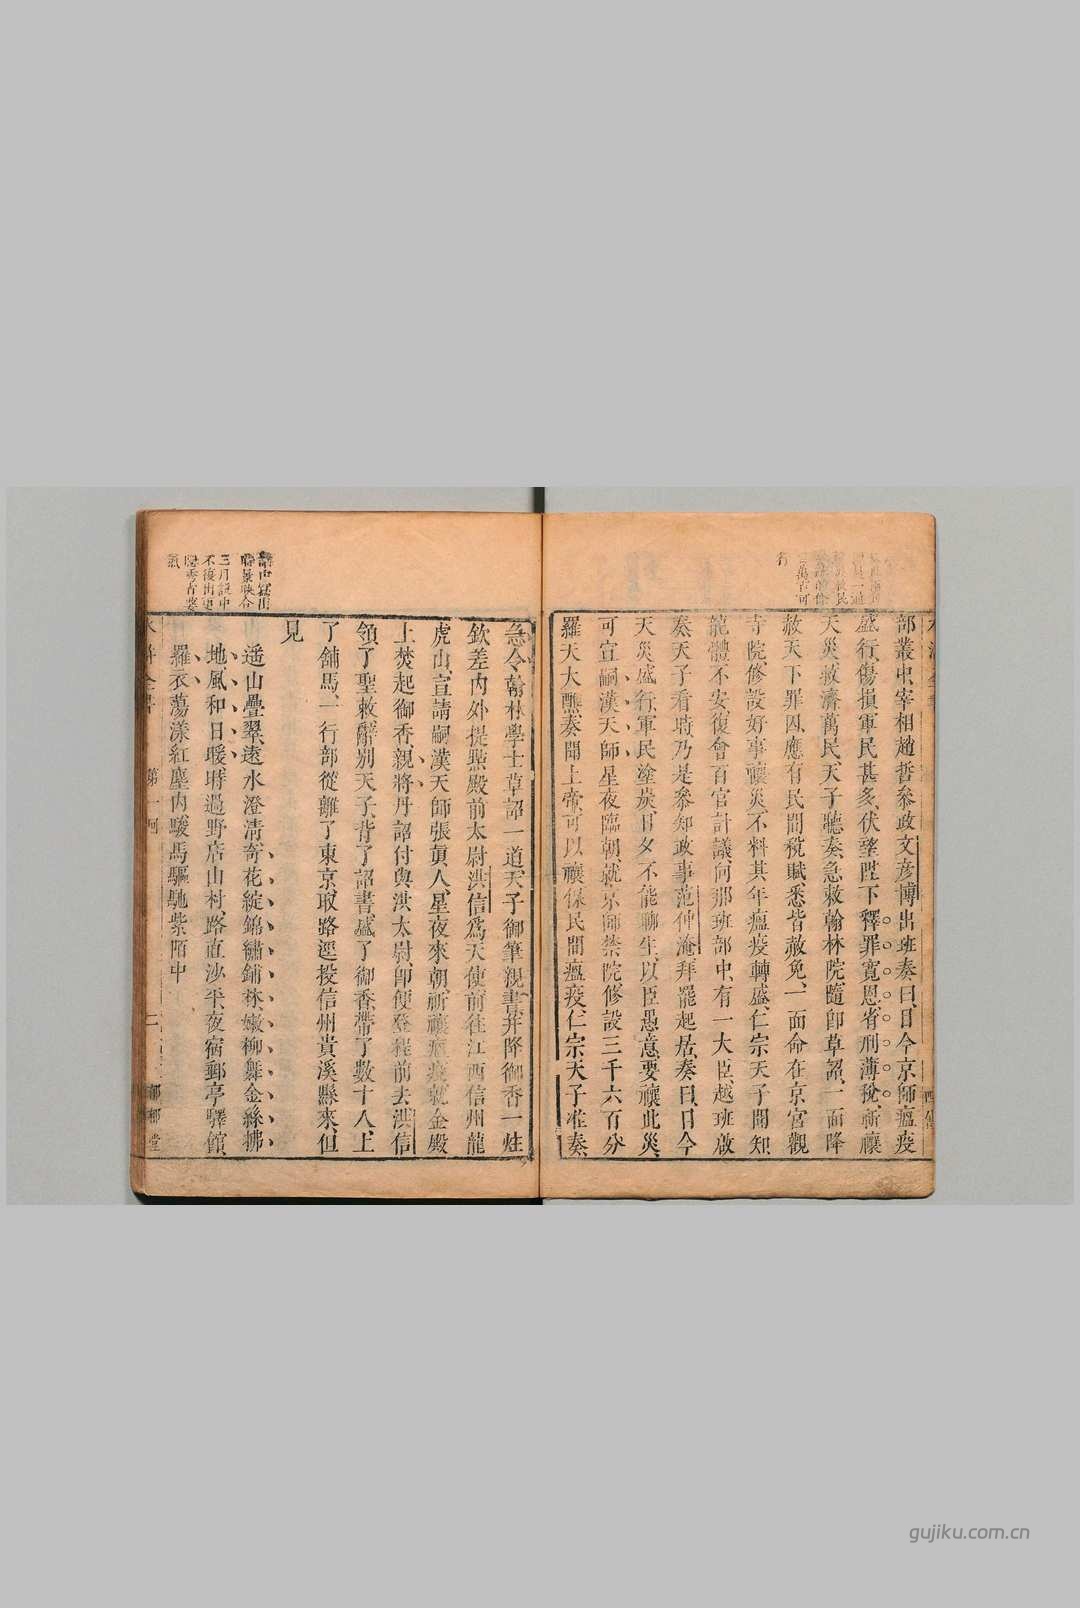 部叢中宰相趙哲參政文彥博出班奏曰目今京師瘟疫
盛行傷損軍民甚多伏望陛下釋罪寬恩省刑薄稅祈禳
天災救濟萬民天子聽奏急敕翰林院隨即草詔一面降
赦天下罪囚應有民間稅賦悉皆赦免一面命在京宮觀
寺院修設好事禳災不料其年瘟疫轉盛仁宗天子聞知
龍體不安復會百官計議向那班部中有一大臣越班啟
奏天子看時乃是參知政事范仲淹拜罷起居奏曰目今
天災盛行軍民塗炭日夕不能聊生以臣愚意要禳此災
可宣嗣漢天師星夜臨朝就京師禁院修設三千六百分
羅天大醮奏聞上帝可以禳保民間瘟疫仁宗天子准奏
急令翰林學士草詔一道天子御筆親書并降御香一炷
欽差內外提點殿前太尉洪信為天使前往江西信州龍
虎山宣請嗣漢天師張真人星夜來朝祈禳瘟疫就金殿
上焚起御香親將丹詔付與洪太尉即便登程前去洪信
領了聖敕辭別天子背了詔書盛了御香帶了數十人上
了舖馬一行部從離了東京取路逕投信州貴溪縣來但
見
遥山疊翠遠水澄清奇花綻錦繡鋪林嫩柳舞金絲拂
地風和日暖時過野店山村路直沙平夜宿郵亭驛館
羅衣蕩漾紅塵內駿馬驅馳紫陌中
第一回
二
郁郁堂
gujiku.com.cn